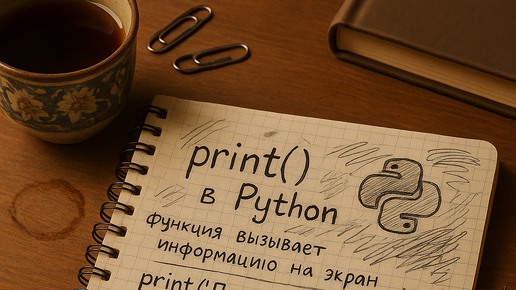 print()
в Python
функция вызывает
информацию на экран
print('П